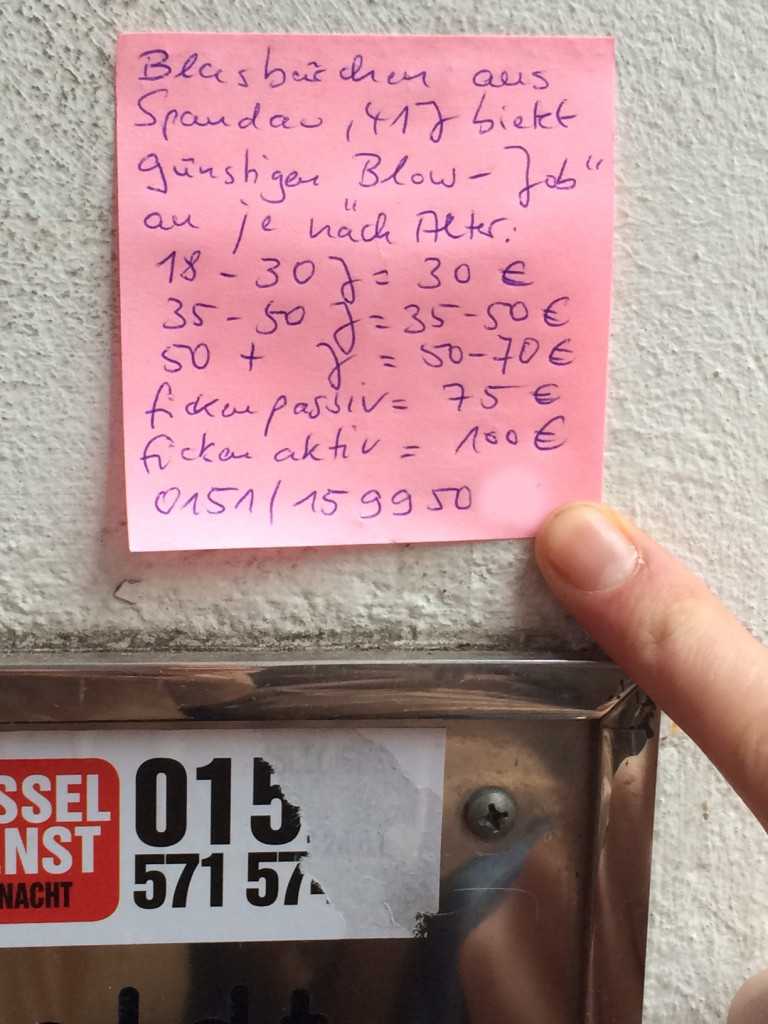 Blasbärchen aus
Spandau, 41J bietet
günstigen "Blow-Job"
an je nach Alter:
18 - 30 J = 30 €
35 - 50 J = 35-50 €
50 + J = 50-70 €
ficken passiv = 75 €
ficken aktiv = 100 €
0151/159950
SSEL
ENST
NACHT
015
571 57